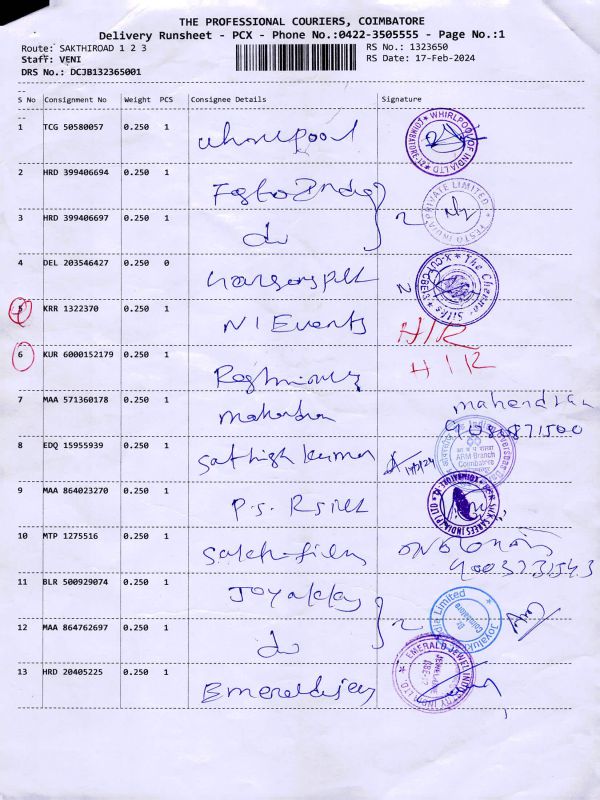 THE PROFESSIONAL COURIERS, COIMBATORE
Delivery Runsheet - PCX - Phone No.:0422-3505555 - Page No.:1
Route: SAKTHIROAD 1 2 3 RS No.: 1323650
Staff: VENI RS Date: 17-Feb-2024
DRS No.: DCJB132365001
S No Consignment No Weight PCS Consignee Details Signature
1 TCG 50580057 0.250 1 whirlpool WHIRLPOOL OF INDIA LTD
2 HRD 399406694 0.250 1 Festo India FESTO INDIA PRIVATE LIMITED
3 HRD 399406697 0.250 1 do
4 DEL 203546427 0.250 0 The Chennai Silks
5 KRR 1322370 0.250 1 N I Events HIR
6 KUR 6000152179 0.250 1 HIR
7 MAA 571360178 0.250 1 mahendran mahendran
9080871500
8 EDQ 15955939 0.250 1 Sathish kumar 17/2/24 ARM Branch Coimbatore
9 MAA 864023270 0.250 1 P.S. R Silk
10 MTP 1275516 0.250 1
11 BLR 500929074 0.250 1 Joyalukkas
12 MAA 864762697 0.250 1 do
13 HRD 20405225 0.250 1 Emerald jew EMERALD JEWEL INDUSTRY INDIA LTD.